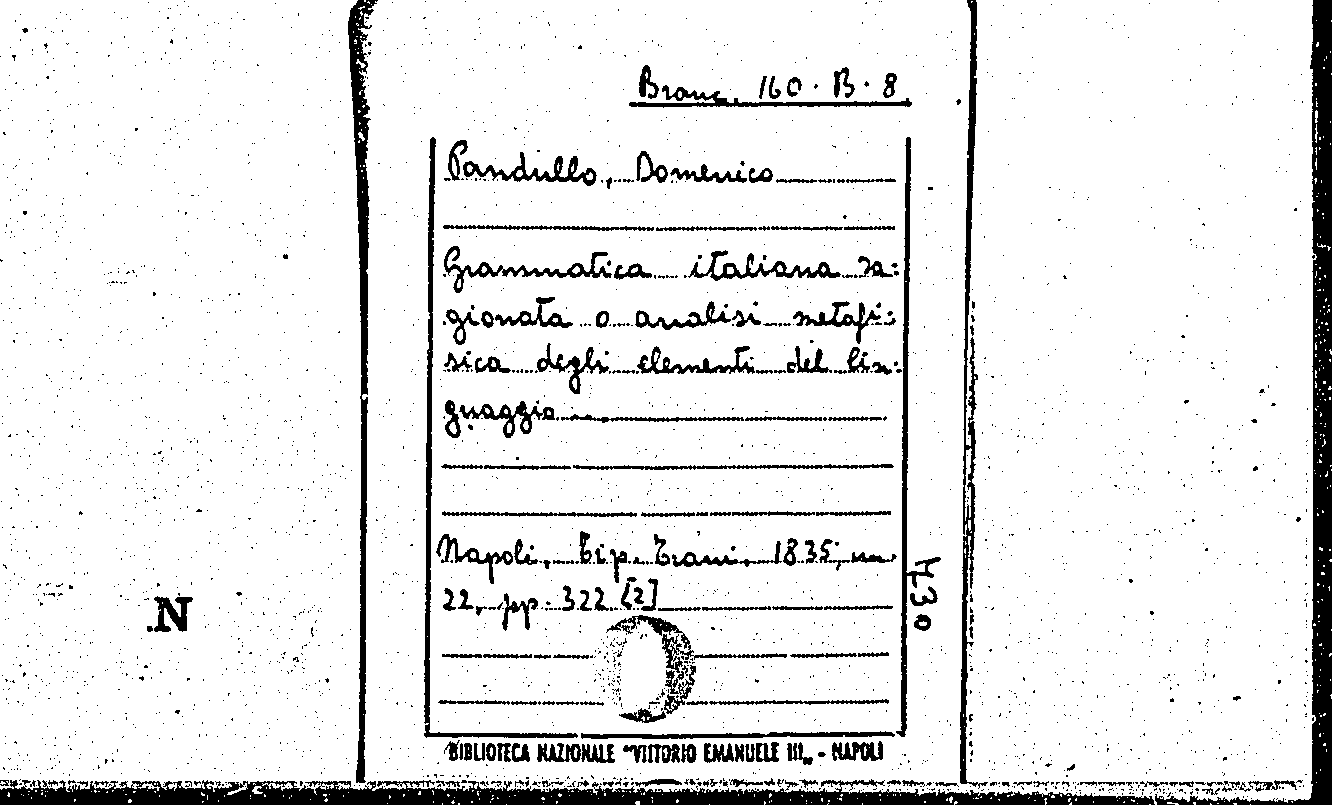 Branc. 160. B. 8
Pandullo, Domenico
Grammatica italiana ra:
gionata o analisi metafi:
sica degli elementi del lin:
guaggio...
Napoli, Tip. Trani, 1835, cm.
22, pp. 322 [2]
430
N
BIBLIOTECA NAZIONALE "VITTORIO EMANUELE III„ - NAPOLI